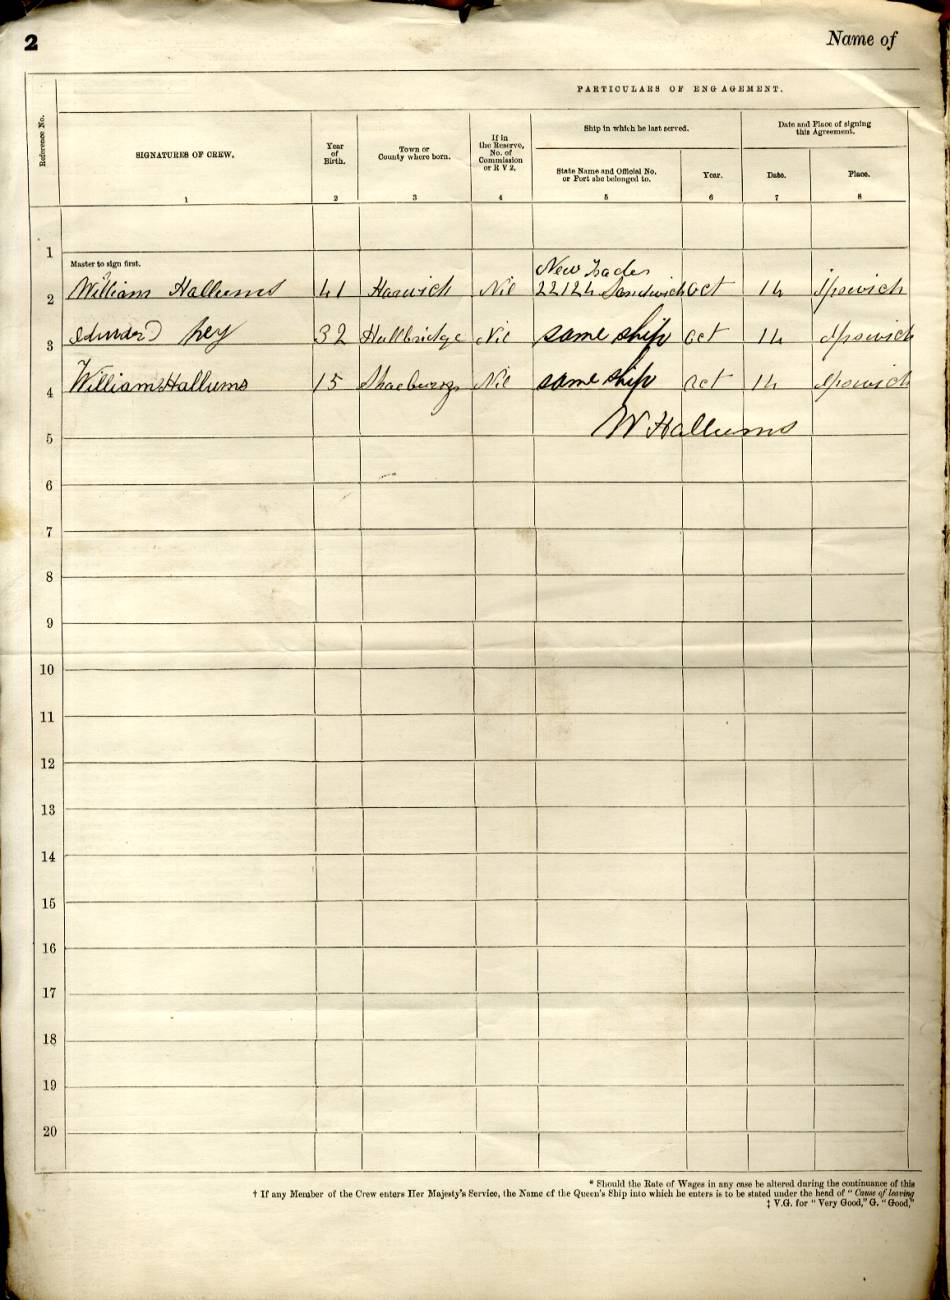 2
Name of
PARTICULARS OF ENGAGEMENT.
Reference No.
SIGNATURES OF CREW.
Year of Birth.
Town or County where born.
If in the Reserve, No. of Commission or R V 2.
Ship in which he last served.
State Name and Official No. or Port she belonged to.
Year.
Date and Place of signing this Agreement.
Date.
Place.
1 2 3 4 5 6 7 8
1
Master to sign first.
New
2 William Hallums 41 Harwich Nil 22124 Sandwich Oct 14 Ipswich
3 hey 32 Hullbridge Nil same ship Oct 14 Ipswich
4 William Hallums 15 Nil same ship Oct 14 Ipswich
W Hallums
5
6
7
8
9
10
11
12
13
14
15
16
17
18
19
20
* Should the Rate of Wages in any case be altered during the continuance of this
† If any Member of the Crew enters Her Majesty's Service, the Name of the Queen's Ship into which he enters is to be stated under the head of "Cause of leaving
‡ V.G. for "Very Good," G. "Good,"